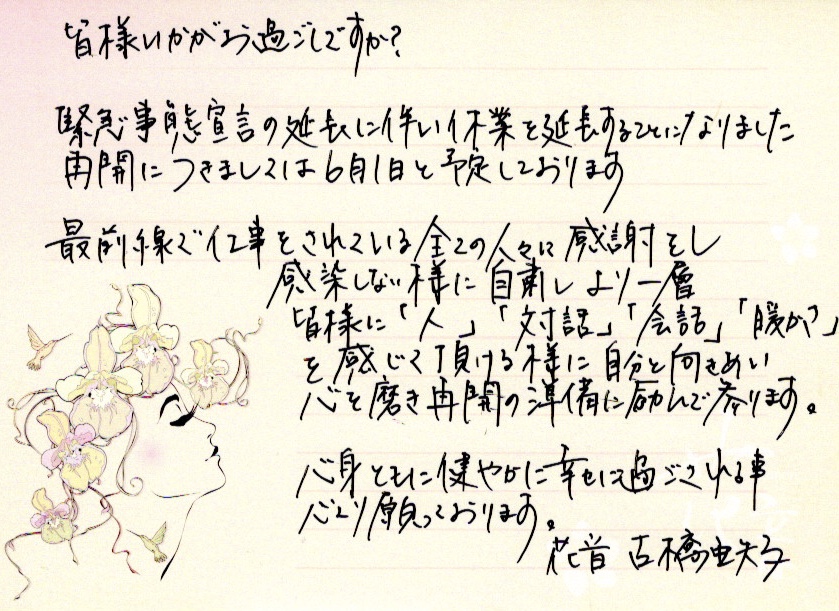 皆様いかがお過ごしですか?
緊急事態宣言の延長に伴い休業を延長することになりました
再開につきましては6月1日と予定しております
最前線で仕事をされている全ての人々に感謝をし
感染しない様に自粛しより一層
皆様に「人」「対話」「会話」「暖かさ」
を感じて頂ける様に自分と向きあい
心を磨き再開の準備に励んで参ります。
心身ともに健やかに幸せに過ごされる事
心より願っております。
花音 古橋由矢子